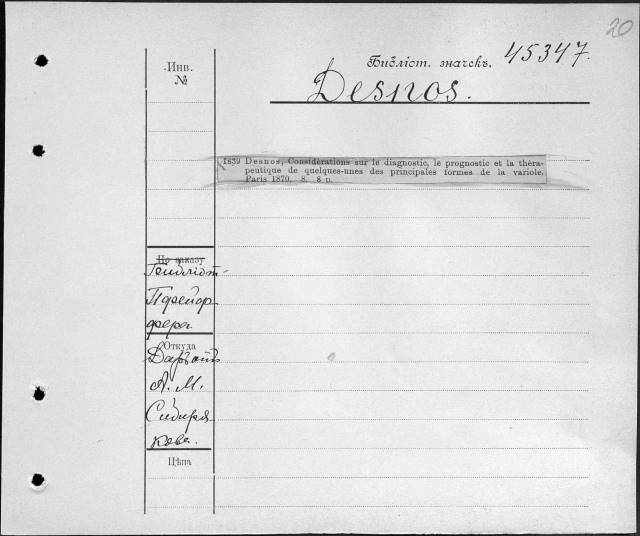 20
Инв.
№
Библіот. значекъ. 45347.
Desnos.
1839 Desnos, Considérations sur le diagnostic, le prognostic et la théra-
peutique de quelques-unes des principales formes de la variole.
Paris 1870. 8. 8 p.
По заказу
Пфейф-
фера
Откуда
Даръ отъ
А. М.
Сибиря
кова.
Цѣна